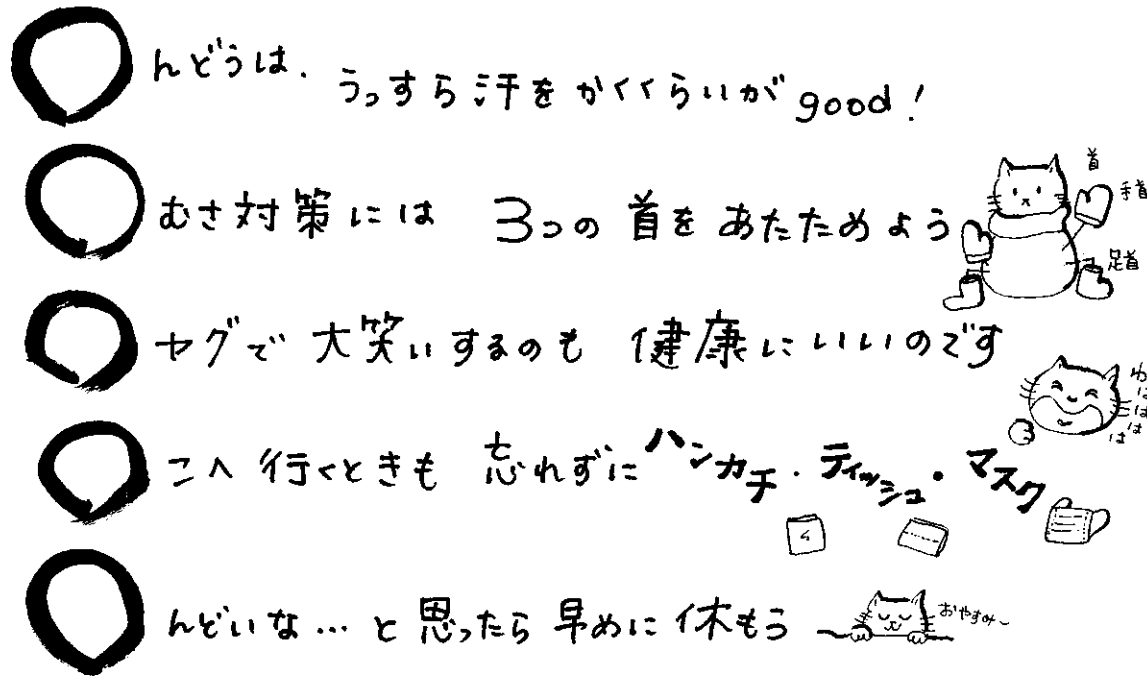 んどうは、うっすら汗をかくくらいがgood!
むさ対策には 3つの首をあたためよう
首
手首
足首
ャグで大笑いするのも 健康にいいのです
わははは
こへ行くときも 忘れずに ハンカチ・ティッシュ・マスク
んどいな…と思ったら早めに休もう
おやすみ~